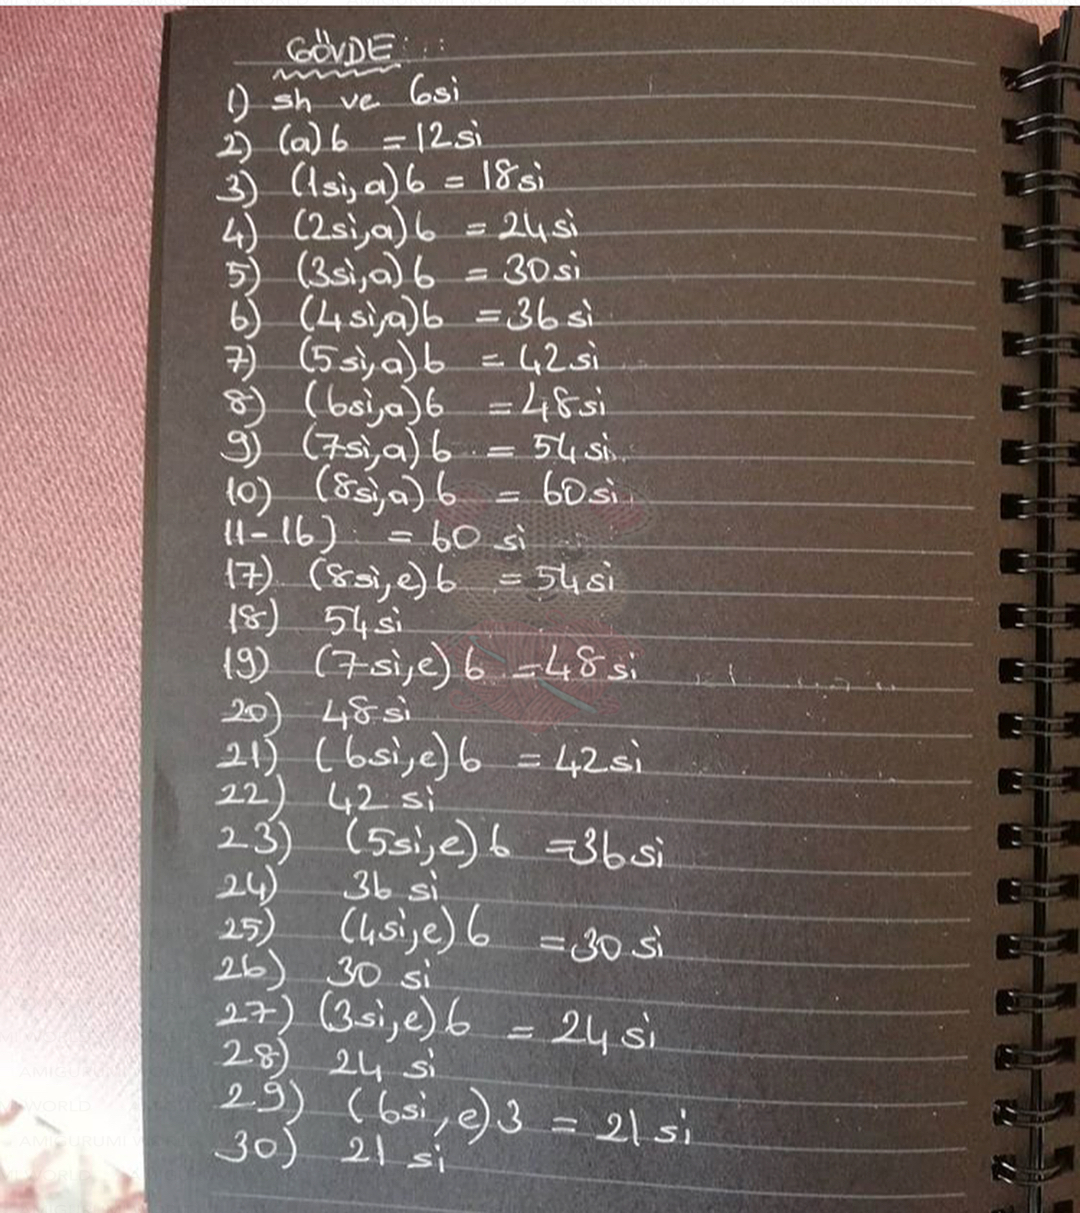 GÖVDE:
1) sh ve 6si
2) (a)6 =12si
3) (1si,a)6 = 18si
4) (2si,a)6 = 24si
5) (3si,a)6 = 30si
6) (4si,a)6 =36si
7) (5si,a)6 = 42si
8) (6si,a)6 =48si
9) (7si,a)6 = 54si
10) (8si,a)6 = 60si
11-16) = 60 si
17) (8si,e)6 =54si
18) 54si
19) (7si,e)6 =48si
20) 48si
21) (6si,e)6 =42si
22) 42 si
23) (5si,e)6 =36si
24) 36 si
25) (4si,e)6 =30si
26) 30 si
27) (3si,e)6 = 24si
28) 24 si
29) (6si,e)3 = 21si
30) 21 si
AMIGURUMI
WORLD
AMIGURUMI W
WORLD